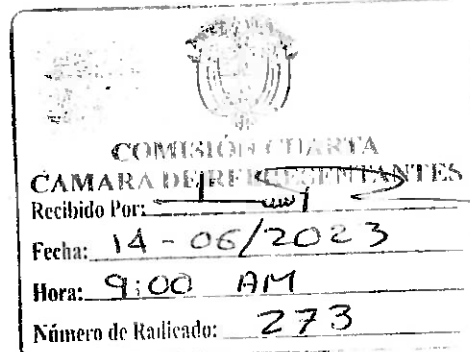 COMISIÓN CUARTA
CAMARA DE REPRESENTANTES
Recibido Por:
Fecha: 14 - 06/2023
Hora: 9:00 AM
Número de Radicado: 273